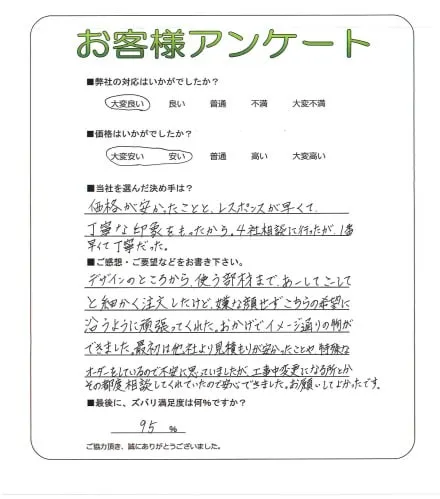 お客様アンケート
■弊社の対応はいかがでしたか?
大変良い 良い 普通 不満 大変不満
■価格はいかがでしたか?
大変安い 安い 普通 高い 大変高い
■当社を選んだ決め手は?
価格が安かったことと、レスポンスが早くて、
丁寧な印象をもったから。4社相談に行ったが、1番
早くて丁寧だった。
■ご感想・ご要望などをお書き下さい。
デザインのところから、使う部材まで、あーしてこーして
と細かく注文したけど、嫌な顔せずこちらの希望に
沿うように頑張ってくれた。おかげでイメージ通りの物が
できました。最初は他社より見積もりが安かったことや、特殊な
オーダーをしているので不安に思っていましたが、工事中変更になる所とか
その都度相談してくれていたので安心できました。お願いしてよかったです。
■最後に、ズバリ満足度は何%ですか?
95 %
ご協力頂き、誠にありがとうございました。